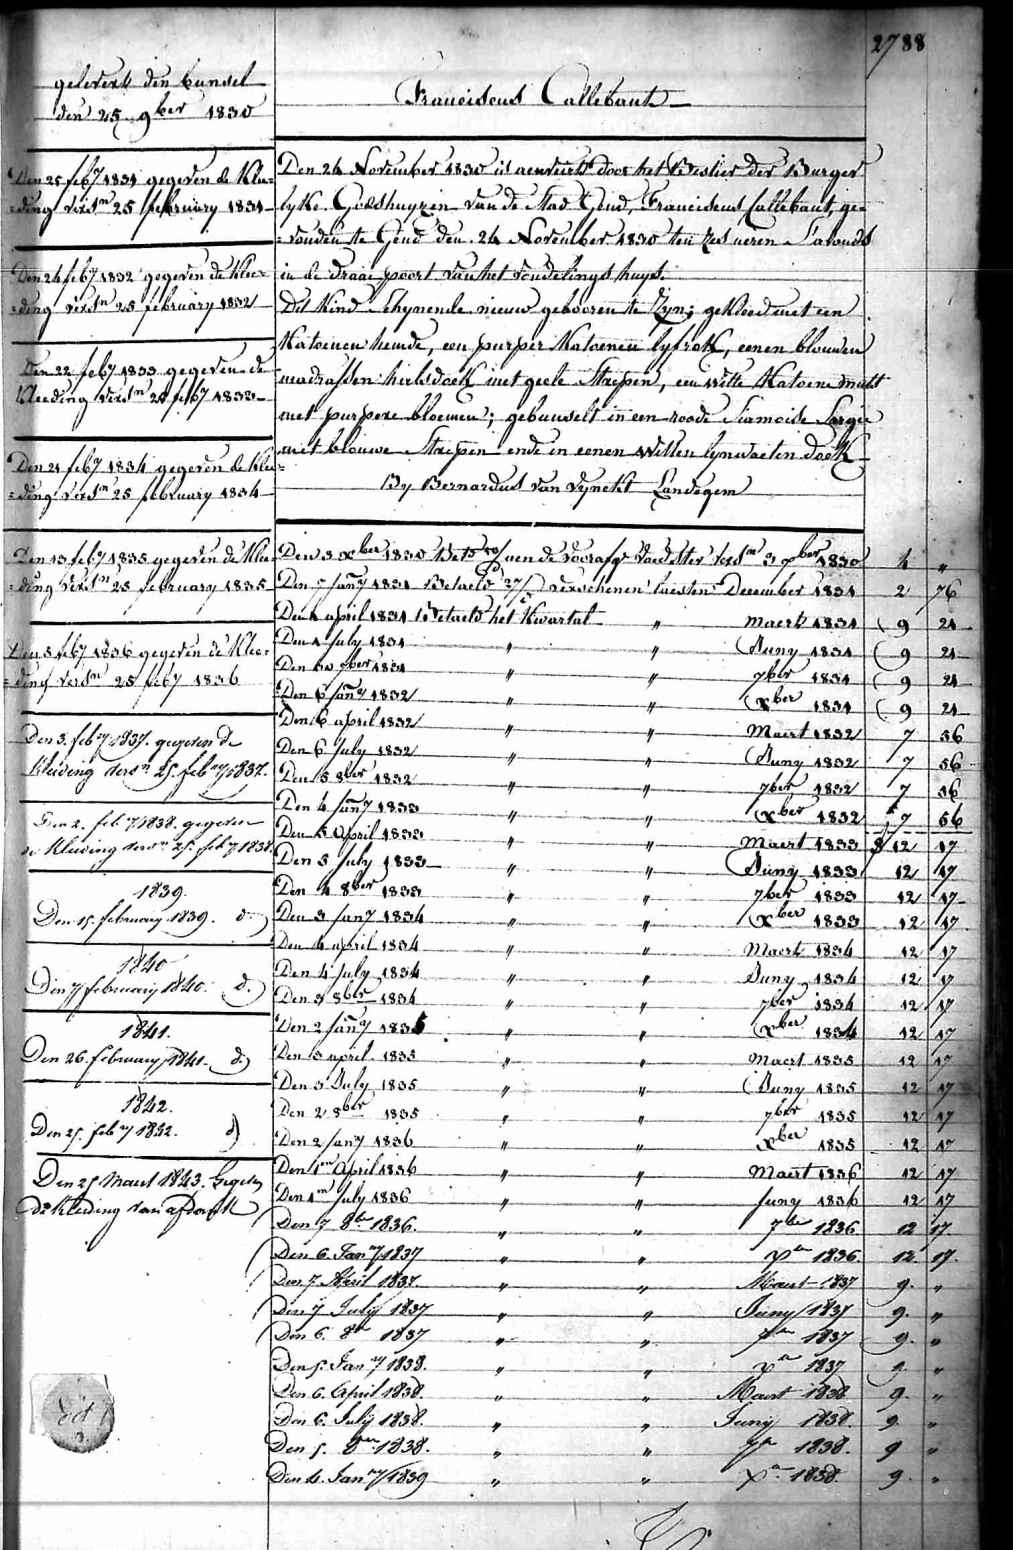 2788
gelevert den bundel
den 25 9ber 1830
Franciscus Callebaut
Den 25 feb7 1831 gegeven de Klee=
=ding verst.n 25 february 1831
Den 24 feb7 1832 gegeven de Klee=
=ding verst.n 25 february 1832
Den 22 feb7 1833 gegeven de
Kleeding verst.n 25 feb7 1833
Den 21 feb7 1834 gegeven de Klee=
=ding verst.n 25 february 1834
Den 13 feb7 1835 gegeven de Klee=
=ding verst.n 25 february 1835
Den 5 feb7 1836 gegeven de Klee=
=ding verst.n 25 feb7 1836
Den 3. feb.ry 1837. gegeven de
Kleeding vers.n 25. feb.ry 1837.
Den 2. feb.ry 1838. gegeven
de Kleeding vers.n 25. feb.ry 1838.
1839.
Den 15. february 1839. d.o
1840
Den 7 february 1840. d.o
1841.
Den 26. february 1841. d.o
1842.
Den 25. feb.ry 1832. d.o
Den 25 Maert 1843. Gegeven
de Kleeding van
Den 24 November 1830 is door het Bestier der Burger
lyke Godshuyzen van de Stad Gend, Franciscus Callebaut, ge=
=vonden te Gend den 24 November 1830 ten zes ueren S'avonds
in de draai poort van het vondelings huys.
Dit Kind Schynende nieuw gebooren te Zyn; gekleed met een
Katoenen hemde, een purper Katoenen lyfrok, eenen blouwen
madrassen hals doek met geele Strepen, een witte Katoene muts
met purpere bloemen; gebunselt in een roode Siamoise Sargie
met blouwe Strepen ende in eenen Witten lynwaeten doek
By Bernardus van Vynckt Landegem
Den 3 xber 1830 aen de voorafg.e voedster verst.n 3 9ber 1830 4 "
Den 7 Jan7 1831 Betaeld 27/ verschenen laesten December 1831 2 76
Den 4 april 1831 Betaeld het Kwartal " maert 1831 9 21
Den 4 July 1831 " " Juny 1831 9 21
Den 8ber 1831 " " 7ber 1831 9 21
Den 6 Jan7 1832 " " xber 1831 9 21
Den 6 april 1832 " " Maert 1832 7 56
Den 6 July 1832 " " Juny 1832 7 56
Den 5 8ber 1832 " " 7ber 1832 7 56
Den 4 Jan7 1833 " " xber 1832 7 56
Den 5 April 1833 " " Maert 1833 12 17
Den 5 July 1833 " " Juny 1833 12 17
Den 4 8ber 1833 " " 7ber 1833 12 17
Den 3 Jan7 1834 " " xber 1833 12 17
Den 4 april 1834 " " Maert 1834 12 17
Den 4 July 1834 " " Juny 1834 12 17
Den 3 8ber 1834 " " 7ber 1834 12 17
Den 2 Jan7 1835 " " xber 1834 12 17
Den 3 april 1835 " " Maert 1835 12 17
Den 3 July 1835 " " Juny 1835 12 17
Den 2 8ber 1835 " " 7ber 1835 12 17
Den 2 Jan7 1836 " " xber 1835 12 17
Den 1en April 1836 " " Maert 1836 12 17
Den 1en July 1836 " " Juny 1836 12 17
Den 7 8br 1836. " " 7br 1836 12 17
Den 6. Jan.ry 1837 " " xbr 1836. 12. 17.
Den 7 April 1837 " " Maert 1837 9. "
Den 7 July 1837 " " Juny 1837 9. "
Den 6. 8br 1837 " " 7br 1837 9. "
Den 5. Jan.ry 1838. " " xbr 1837 9. "
Den 6. April 1838. " " Maert 1838 9. "
Den 6. July 1838. " " Juny 1838. 9. "
Den 5. 8br 1838. " " 7br 1838. 9 "
Den 4. Jan.ry 1839 " " xbr 1838. 9. "